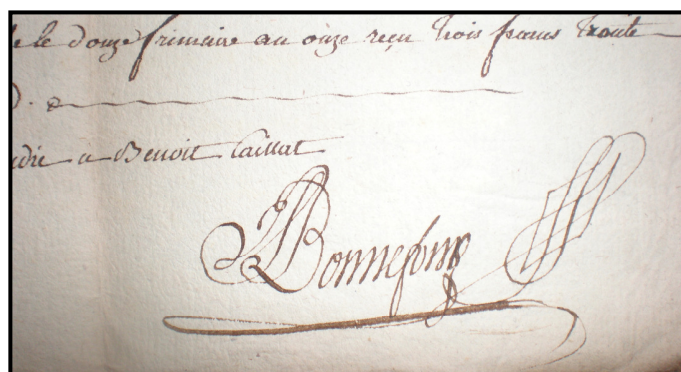 le douze frimaire an onze reçu trois francs trente
a Benoit Caillat
Bonnefont